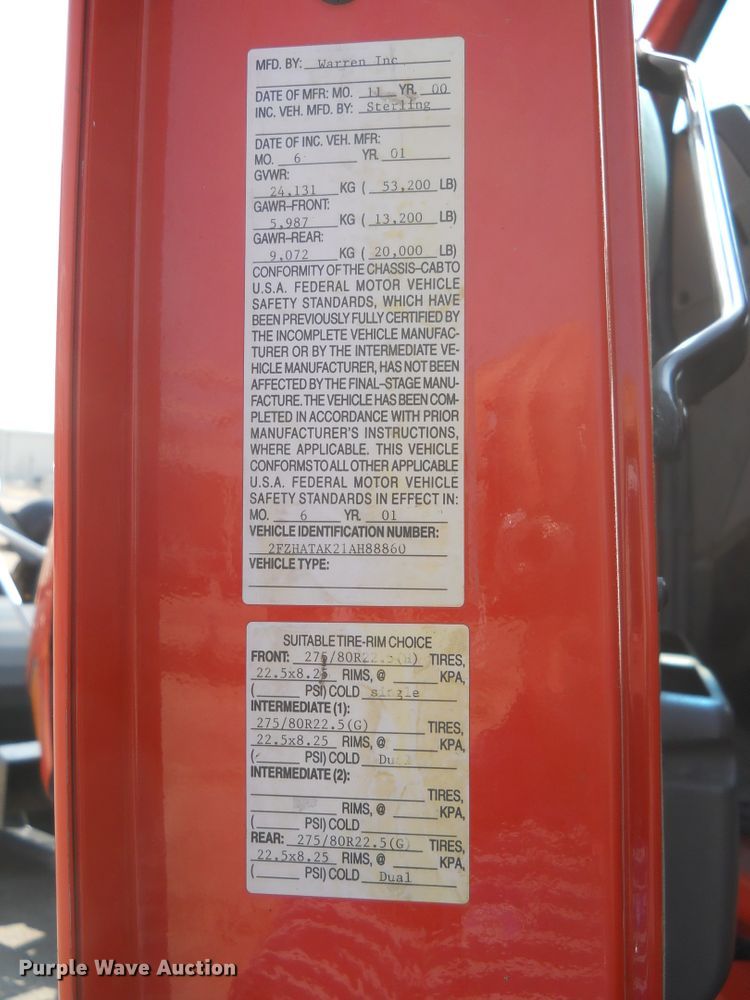 MFD. BY: Warren Inc
DATE OF MFR: MO. 11 YR. 00
INC. VEH. MFD. BY: Sterling
DATE OF INC. VEH. MFR:
MO. 6 YR. 01
GVWR:
24,131 KG ( 53,200 LB)
GAWR–FRONT:
5,987 KG ( 13,200 LB)
GAWR–REAR:
9,072 KG ( 20,000 LB)
CONFORMITY OF THE CHASSIS–CAB TO
U.S.A. FEDERAL MOTOR VEHICLE
SAFETY STANDARDS, WHICH HAVE
BEEN PREVIOUSLY FULLY CERTIFIED BY
THE INCOMPLETE VEHICLE MANUFAC-
TURER OR BY THE INTERMEDIATE VE-
HICLE MANUFACTURER, HAS NOT BEEN
AFFECTED BY THE FINAL–STAGE MANU-
FACTURE. THE VEHICLE HAS BEEN COM-
PLETED IN ACCORDANCE WITH PRIOR
MANUFACTURER'S INSTRUCTIONS,
WHERE APPLICABLE. THIS VEHICLE
CONFORMS TO ALL OTHER APPLICABLE
U.S.A. FEDERAL MOTOR VEHICLE
SAFETY STANDARDS IN EFFECT IN:
MO. 6 YR. 01
VEHICLE IDENTIFICATION NUMBER:
2FZHATAK21AH88860
VEHICLE TYPE:
SUITABLE TIRE-RIM CHOICE
FRONT: 275/80R22.5(H) TIRES,
22.5x8.25 RIMS, @ KPA,
( PSI) COLD single
INTERMEDIATE (1):
275/80R22.5(G) TIRES,
22.5x8.25 RIMS, @ KPA,
( PSI) COLD Dual
INTERMEDIATE (2):
TIRES,
RIMS, @ KPA,
( PSI) COLD
REAR: 275/80R22.5(G) TIRES,
22.5x8.25 RIMS, @ KPA,
( PSI) COLD Dual
Purple Wave Auction